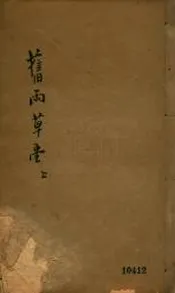 舊雨草堂 上
10412